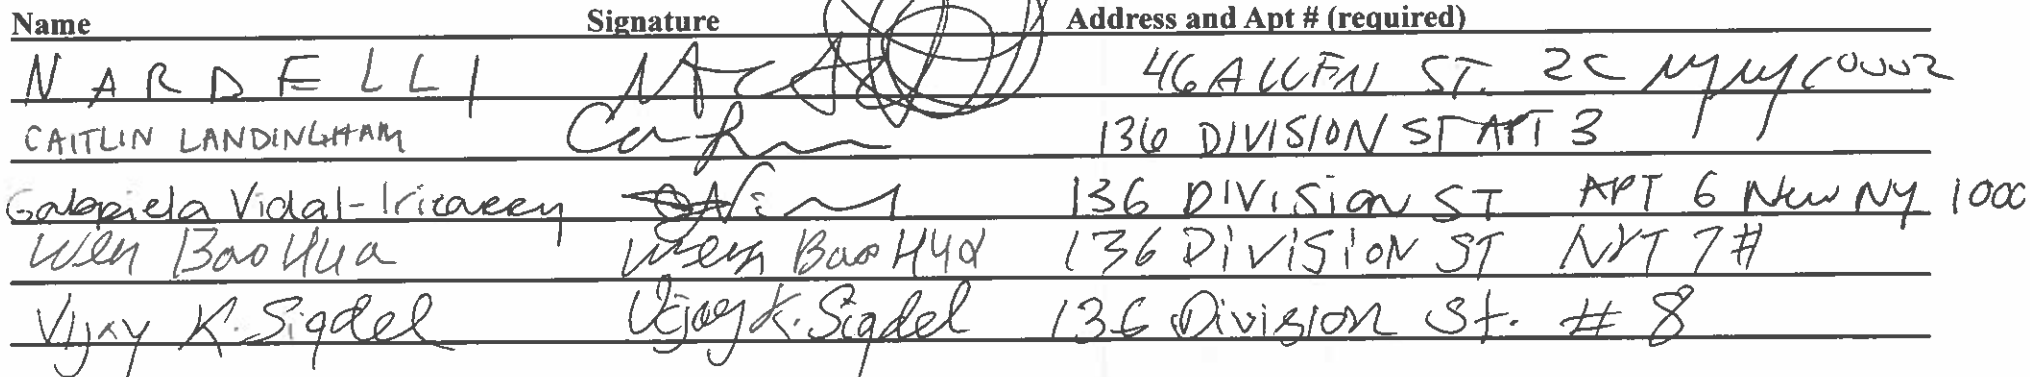 Name Signature Address and Apt # (required)
NARDELLI 46 ALLEN ST. 2C NY NY 10002
CAITLIN LANDINGHAM 136 DIVISION ST APT 3
Gabriela Vidal-Irizarry 136 DIVISION ST APT 6 New NY 1000
Wen Bao Hua Wen Bao Hua 136 DIVISION ST NYT 7#
Vijay K. Sigdel Vijay K. Sigdel 136 Division St. # 8